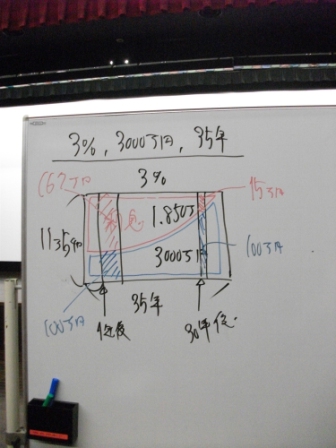 3%, 3000万円, 35年
3%
15万円
利息
1.850万
3000万円
100万円
35年
100万円
1年後
30年後